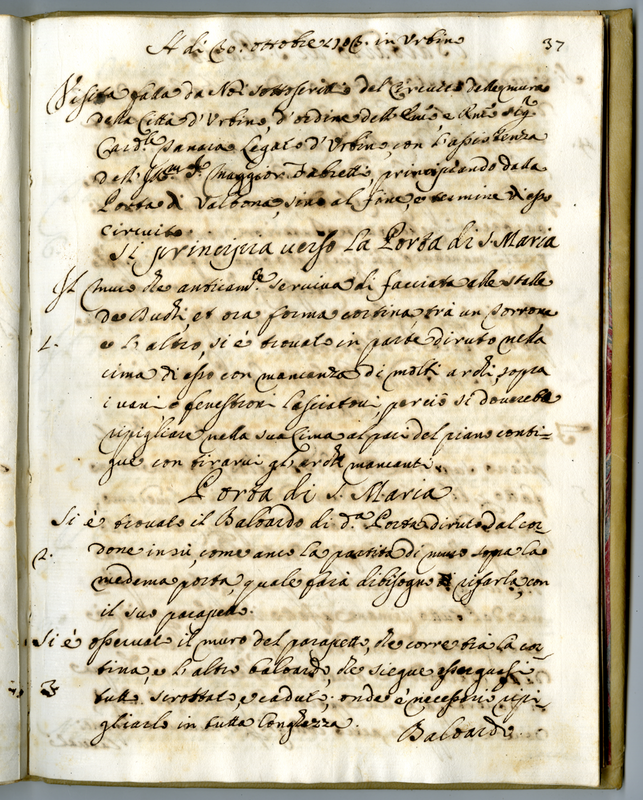 A di 30. ottobre in Urbino
37
Visita fatta da Noi sottoscritti del Circuito delle mura
della Città d'Urbino, d'ordine dell'Em̃o e Rm̃o Sig.r
Card.le Legato d'Urbino, con l'assistenza
dell' Ill.m S.r Maggior Fabretti, principiando dalla
Porta di Valbona, sino al fine, e termine di esso
circuito.
Si principia verso la Porta di S. Maria
Il muro che anticam.te serviva di facciata alle stalle
de Duchi, et ora forma cortina trà un Torrone
1.
e l'altro, si è trovato in parte diruto nella
cima di esso con mancanza di molti archi sopra
i vani, o fenestroni lasciatovi, perciò si doverebbe
ripigliare nella sua cima al pari del piano conti-
guo con tirarvi gl'archi mancanti.
Porta di S. Maria.
Si è trovato il Baloardo di d.a Porta diruto dal cor-
2.
done in sù, come anco la partita di muro sopra la
medema porta, quale farà dibisogno di rifarla, con
il suo parapetto.
Si è osservato il muro del parapetto, che corre trà la cor-
tina, e l'altro baloardo, che siegue esser quasi
3
tutto scrostato, e caduto; onde è necessario ripi-
gliarlo in tutta longhezza.
Baloardo